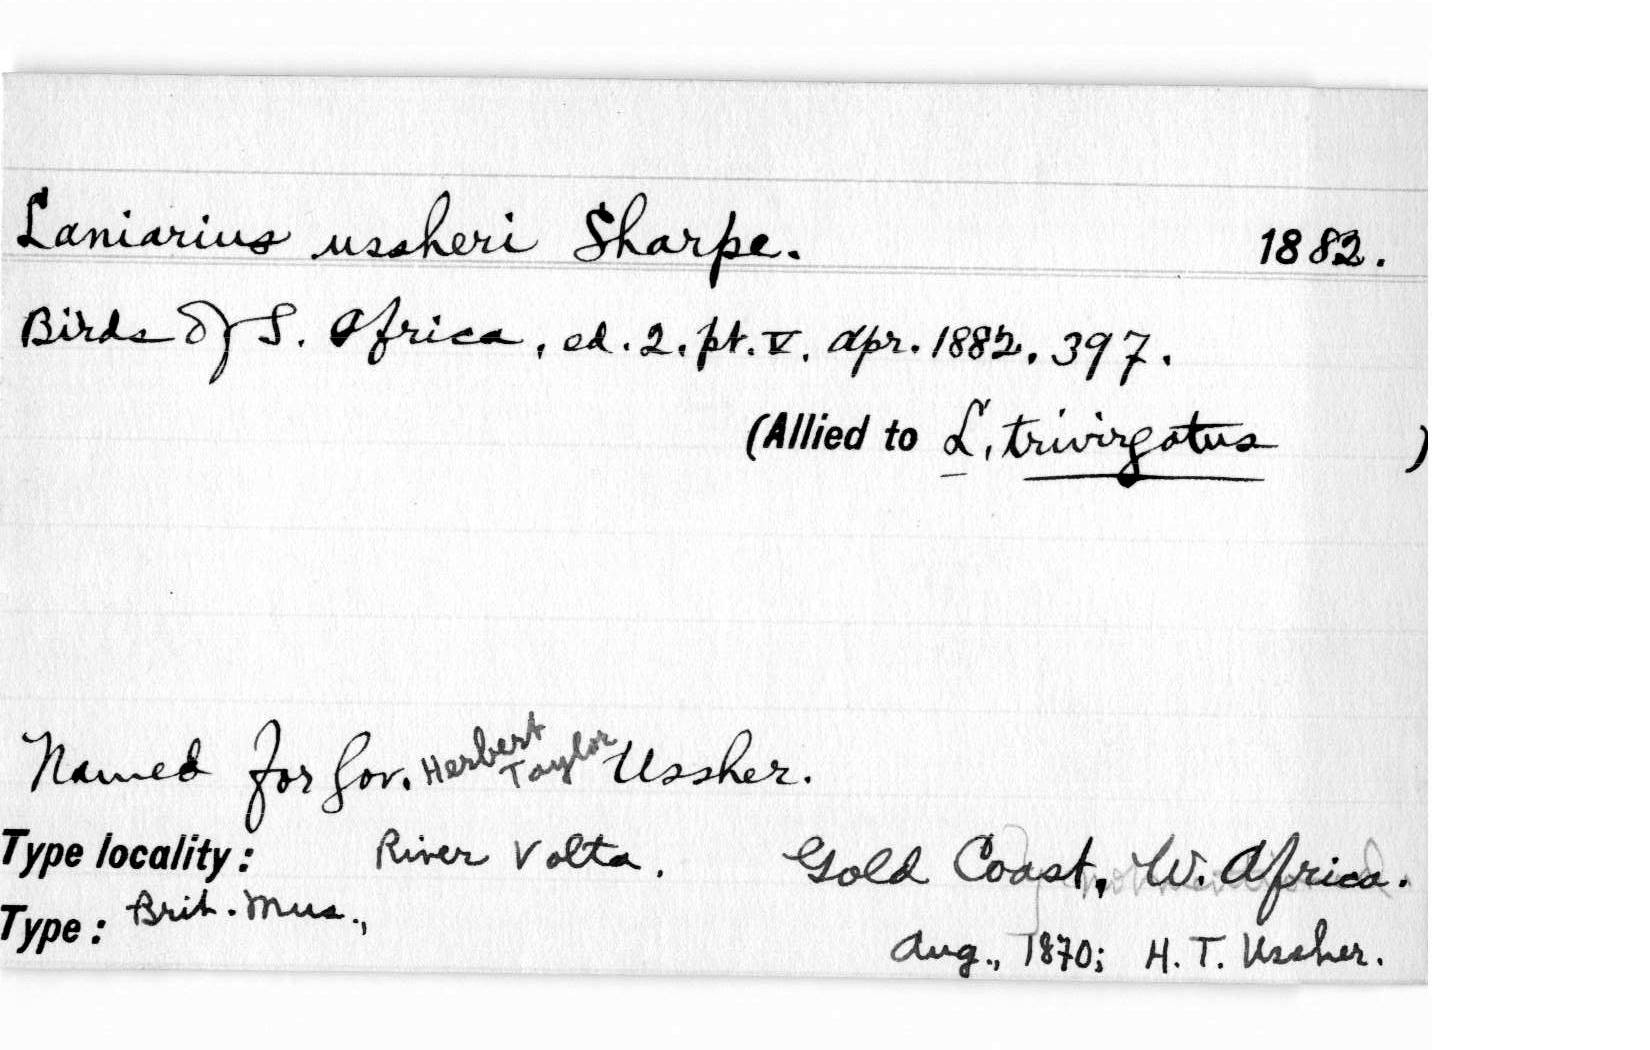 Laniarius ussheri Sharpe. 1882.
Birds of S. Africa, ed. 2. pt. V. Apr. 1882. 397.
(Allied to L. trivirgatus )
Named for Gov. Herbert Taylor Ussher.
Type locality: River Volta. Gold Coast, W. Africa.
Type: Brit. Mus., Aug., 1870; H. T. Ussher.